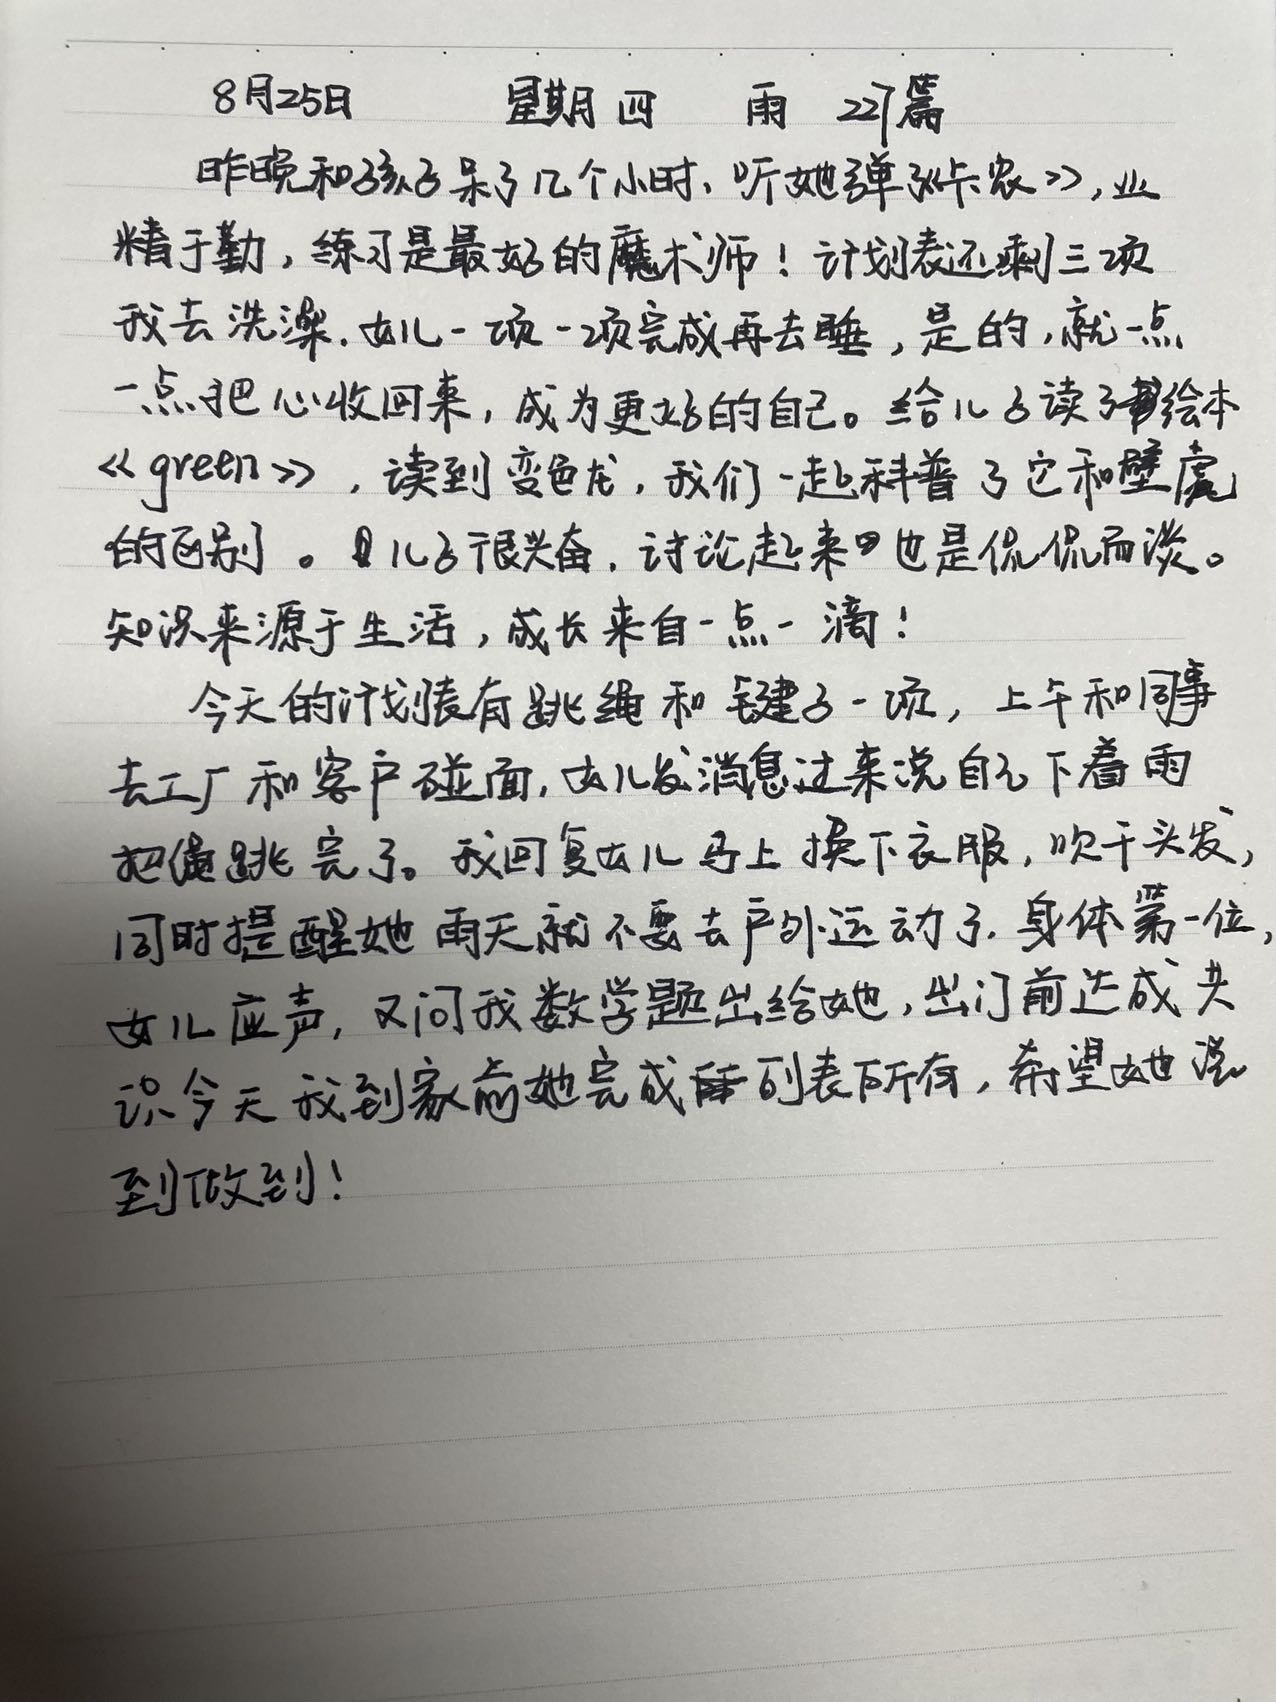 8月25日 星期四 雨 227篇
昨晚和孩子呆了几个小时、听她弹《卡农》,业
精于勤,练习是最好的魔术师!计划表还剩三项
我去洗澡.女儿一项一项完成再去睡,是的,就一点
一点把心收回来,成为更好的自己。给儿子读了绘本
《green》,读到变色龙,我们一起科普了它和壁虎
的区别。儿子很兴奋,讨论起来也是侃侃而谈。
知识来源于生活,成长来自一点一滴!
今天的计划表有跳绳和毽子一项,上午和同事
去工厂和客户碰面,女儿发消息过来说自己下着雨
把绳跳完了。我回复女儿马上换下衣服,吹干头发,
同时提醒她雨天就不要去户外运动了.身体第一位,
女儿应声,又问我数学题出给她,出门前达成共
识今天我到家前她完成列表所有,希望她说
到做到!